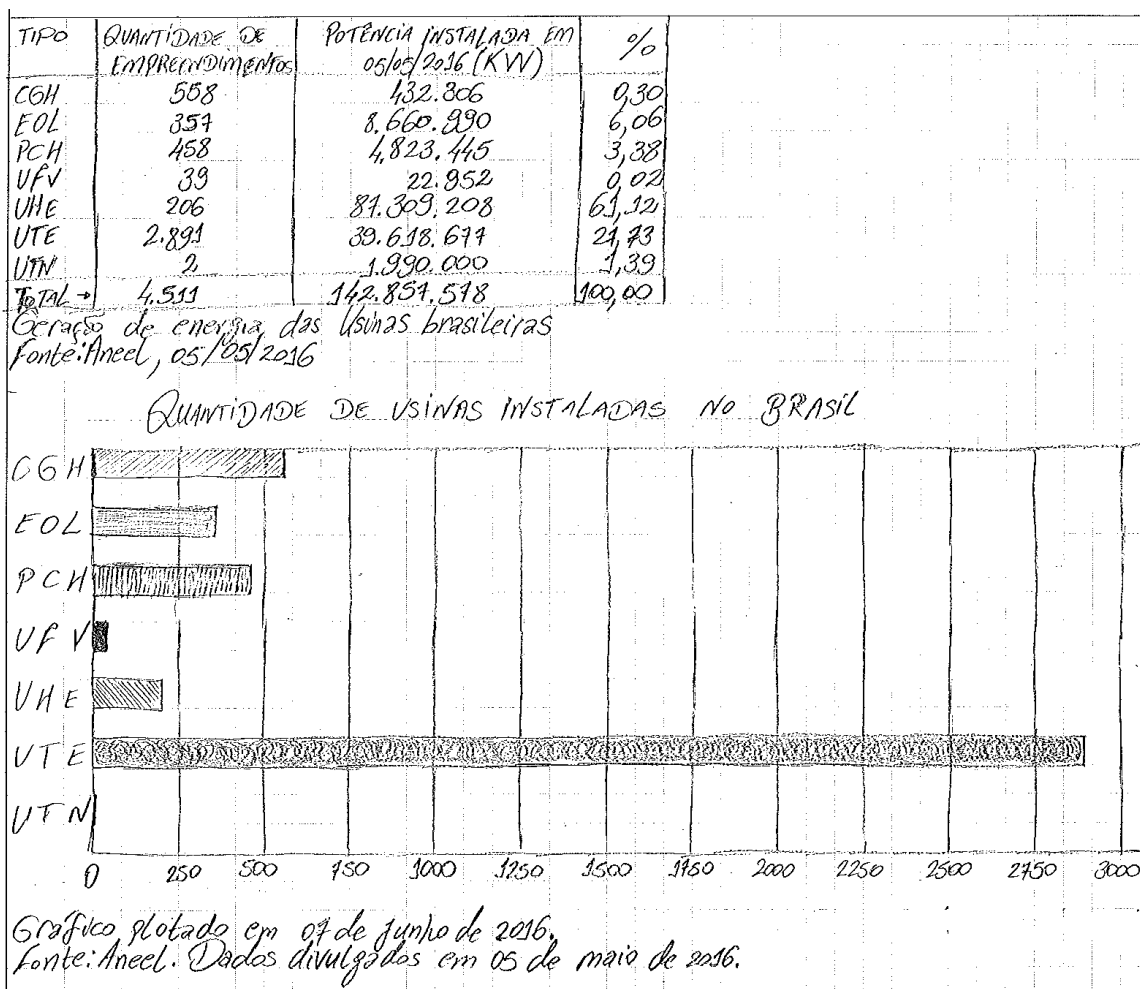 TIPO QUANTIDADE DE EMPREENDIMENTOS POTÊNCIA INSTALADA EM 05/05/2016 (KW) %
CGH 558 432.306 0,30
EOL 357 8.660.990 6,06
PCH 458 4.823.445 3,38
UFV 39 22.952 0,02
UHE 206 87.309.208 61,12
UTE 2.891 39.618.677 27,73
UTN 2 1.990.000 1,39
TOTAL → 4.511 142.857.578 100,00
Geração de energia das Usinas brasileiras
Fonte: Aneel, 05/05/2016
QUANTIDADE DE USINAS INSTALADAS NO BRASIL
CGH
EOL
PCH
UFV
UHE
UTE
UTN
0 250 500 750 1000 1250 1500 1750 2000 2250 2500 2750 3000
Gráfico plotado em 07 de Junho de 2016.
Fonte: Aneel. Dados divulgados em 05 de maio de 2016.